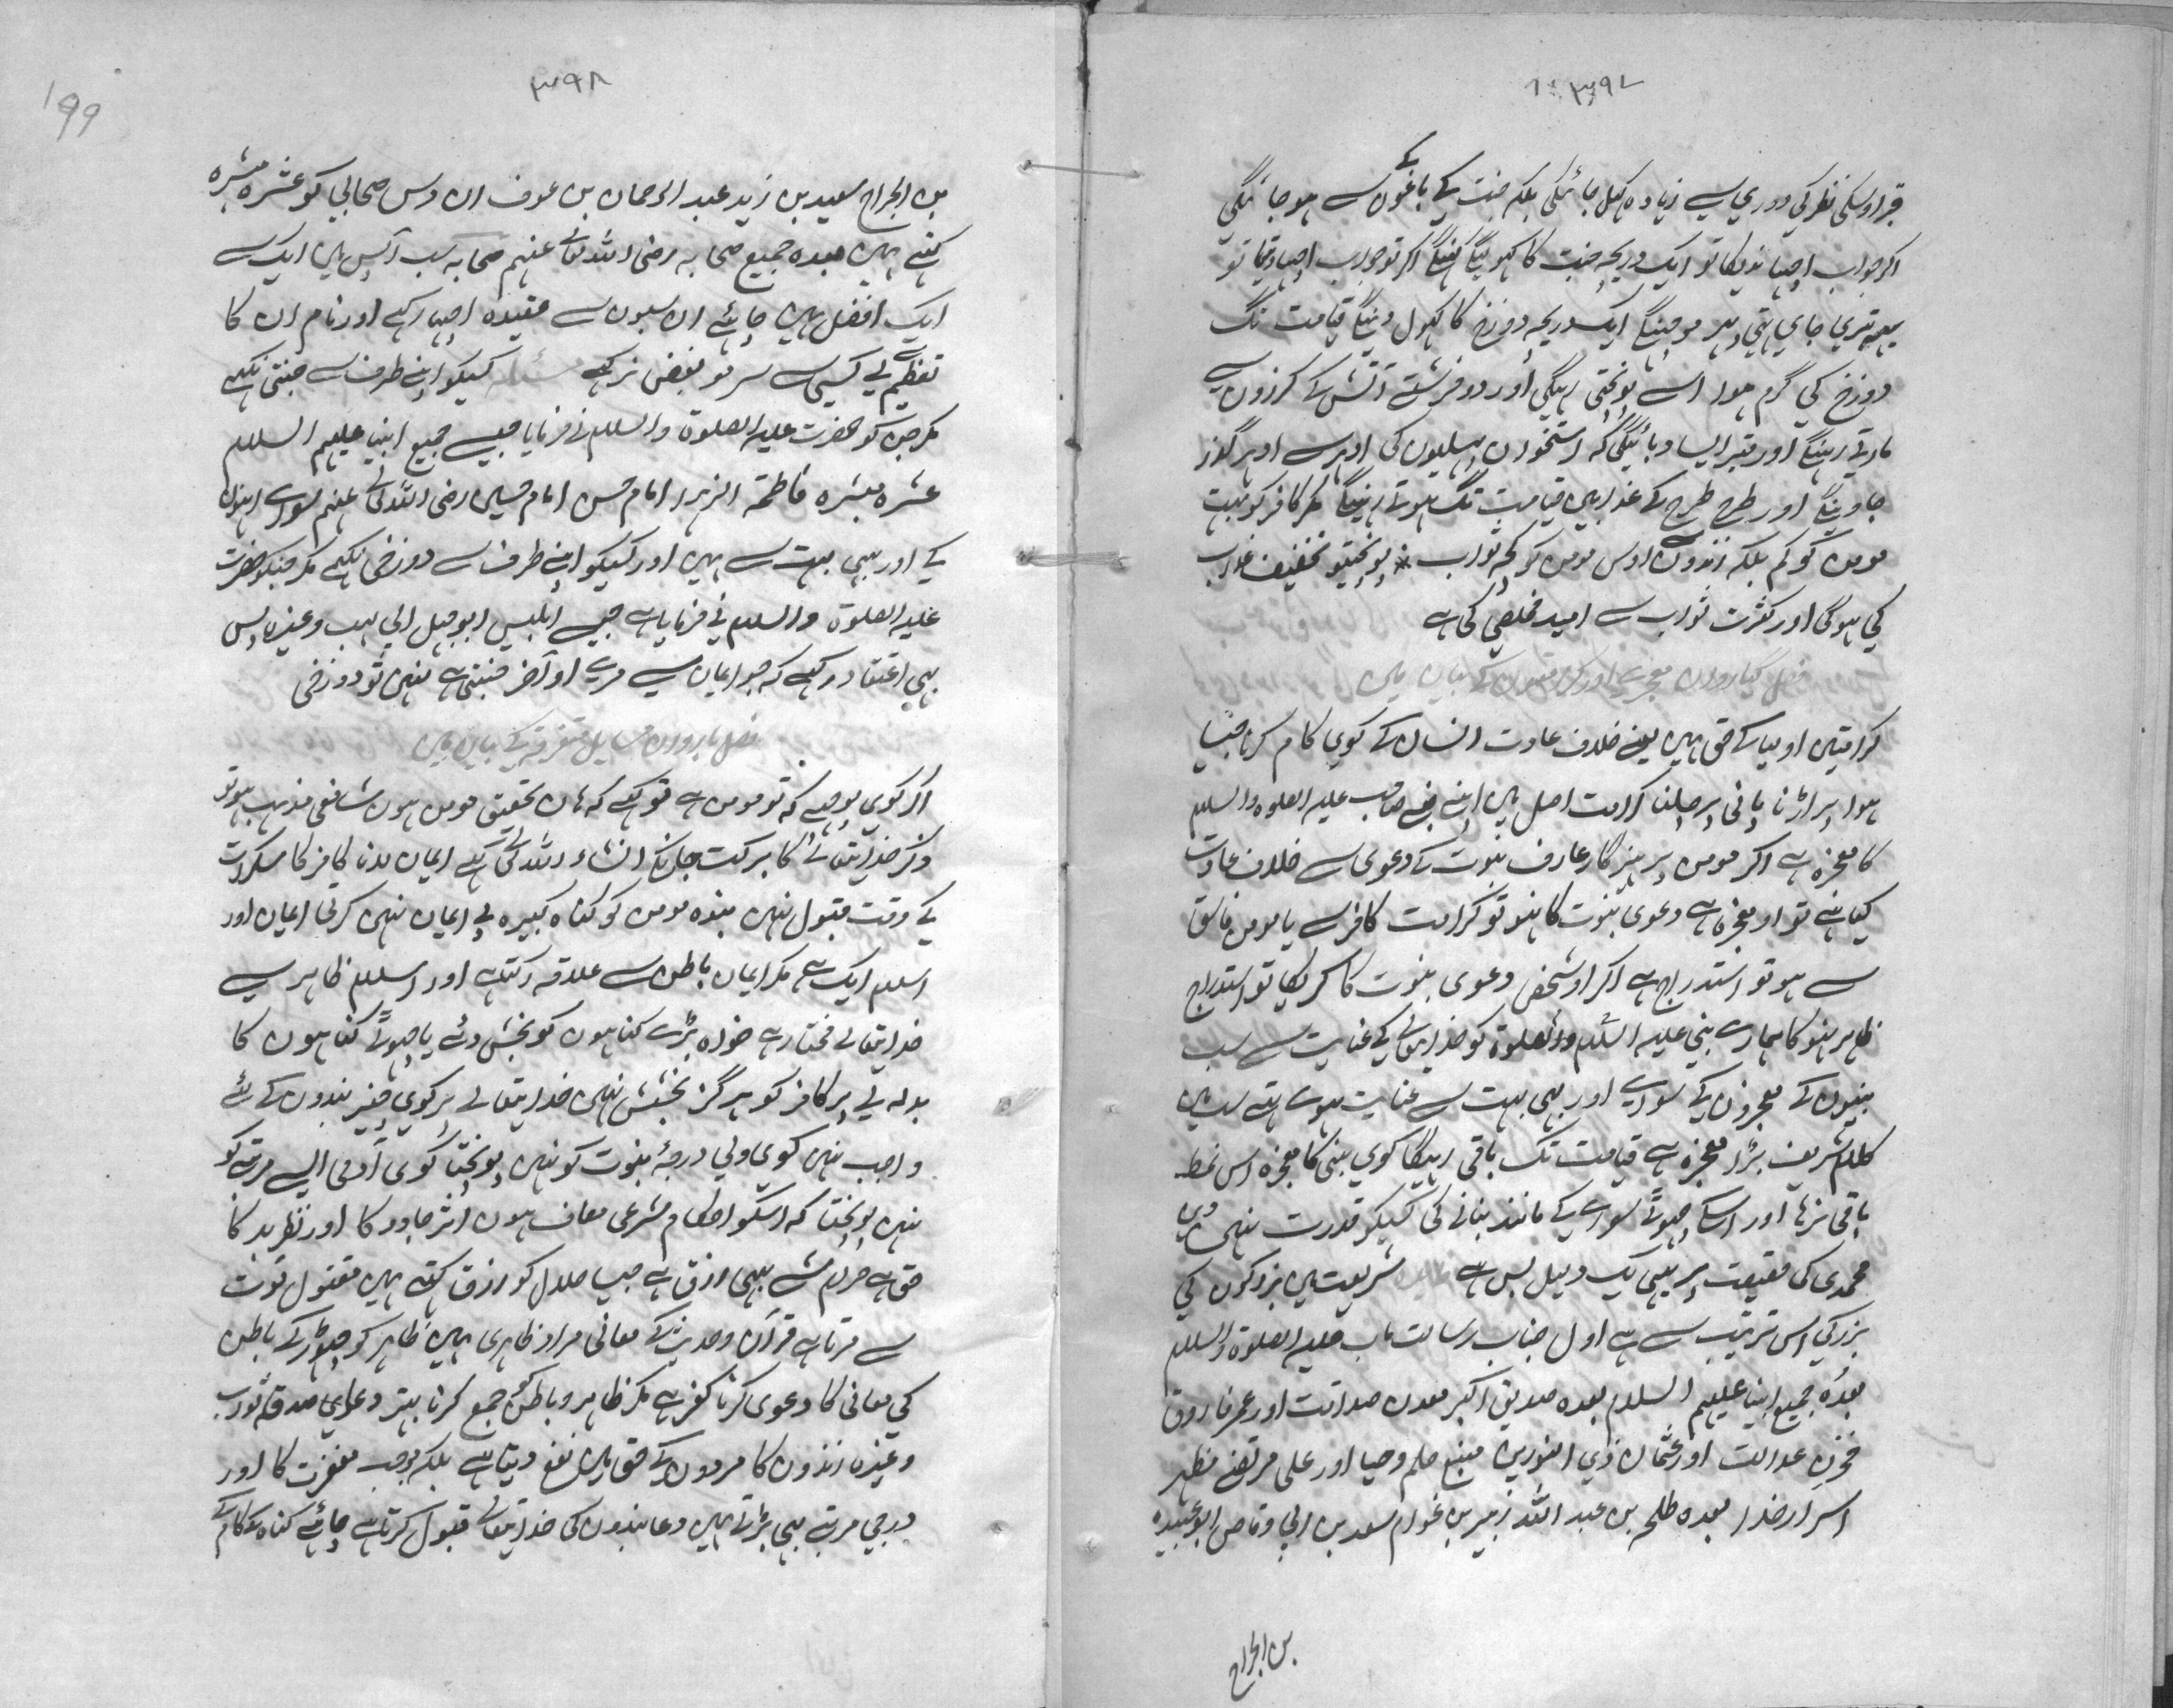 ٣٩٧
قبر اوسکی نظر کی دوری سے زیادہ کہل جائیگی بلکہ جنت کے باغوں کے سے ہو جائیگی
اکر جواب اچہا ندیکا تو ایک دریچہ جنت کا کہولینگے کہینگے اکر تو جواب اچہا دیتا تو
یہہ تیری جای تہی پہر موچینگے ایک دریچہ دوزخ کا کہول دینگے قیامت تگ
دوزخ کی گرم ہوا اسے پونچتی رہیگی اور دو فرشتے آتش کے کرزوں سے
مارتے رہینگے اور قبر ایسا دبائیگی کہ استخوان پہسلیوں کی ادہر سے اودہر گزر
جاوینگے اور طرح طرح کے عذابہیں قیامت تگ ہوتے رہینگے مکر کافر کو بہت
مومن کو کم بلکہ زندوں سے اوس مومن کو کچہ ثواب پونچتیو تخفیف عذاب
کی ہوگی اور کثرت ثواب سے امید مخلصی کی ہے
فصل گیاروان معجزے اور کرامتوں کے بیان میں
کرامتیں اولیا کے حق ہیں یعنے خلاف عادت انسان کے کوی کام کرنا جیسا
ہوا پر اڑنا پانی پر چلنا کرامت اصل میں اپنے پیغمبر صاحب علیہ الصلوہ والسلام
کا معجزہ ہے اکر مومن پرہیزگار عارف نبوت کے دعوی سے خلاف عادت
کیا ہے تو او معجزہ ہے دعوی نبوت کا ہنو تو کرامت کافر سے یا مومن فاسق
سے ہو تو استدراج ہے اکر او شخص دعوی نبوت کا کریگا تو استدراج
ظاہر ہنو کا ہمارے نبی علیہ السلام والصلوۃ کو خدایتعالی کے عنایت سے سب
نبیوں کے معجزوں کے سواے اور بہی بہت سے عنایت ہوے تہے سب میں
کلام شریف بڑا معجزہ ہے قیامت تک باقی رہیگا کوی نبی کا معجزہ اس نمط
باقی نرہا اور اسکے چہوٹے سورے کے مانند بنانے کی کسیکو قدرت نہیں دین
محمدی کی حقیقت پر یہی یک دلیل بس ہے شریعت میں بزرکوں کی
بزرکی اس ترتیب سے ہے اول جناب رسالت ماب علیہ الصلوۃ والسلام
بعدہ جمیع انبیا علیہم السلام بعدہ صدیق اکبر معدن صداقت اور عمر فاروق
مخزن عدالت اور عثمان ذی النورین منبع حلم وحیا اور علی مرتضے مظہر
اسرار خدا بعدہ طلحہ بن عبد اللہ زبیر بن عوام سعد بن ابی وقاص ابو عبیدہ
بن الجراح
٣٩٨
199
بن الجراح سعید بن زید عبد الرحمان بن عوف ان دس صحابی کو عشرہ مبشرہ
کہتے ہیں بعدہ جمیع صحابہ رضی اللہ تعالے عنہم صحابہ سب آپس میں ایک سے
ایک افضل ہیں چاہئے ان سبوں سے عقیدہ اچہا رکہے اور نام ان کا
تعظیم سے لے کسی سے سر مو بغض نرکہے مسئلہ کسیکو اپنے طرف سے جنتی نکہے
مکر جن کو حضرت علیہ الصلوۃ والسلام نے فرمایا جیسے جمیع انبیا علیہم السلام
عشرہ مبشرہ فاطمۃ الزہرا امام حسن امام حسین رضی اللہ تعالے عنہم سواے انہوں
کے اور بہی بہت سے ہیں اور کسیکو اپنے طرف سے دوزخی نکہے مکر جنکو حضرت
علیہ الصلوۃ والسلام نے فرمایا ہے جیسے ابلیس ابو جہل ابی لہب وغیرہ بس
یہی اعتقاد رکہے کہ جو ایمان سے مرے او آخر جنتی ہے نہیں تو دوزخی
فصل باروان مسایل متفرقہ کے بیان میں
اگر کوی پوچہے کہ تو مومن ہے تو کہے کہ ہاں تحقیق مومن ہوں شافعی مذہب ہو تو
ذکر خدایتعالے کا برکت جانکر انشاء اللہ تعالے کہے ایمان لانا کافر کا سکرات
کے وقت قبول نہیں بندہ مومن کو کناہ کبیرہ بے ایمان نہیں کرتی ایمان اور
اسلام ایک ہے مکر ایمان باطن سے علاقہ رکتا ہے اور اسلام ظاہر سے
خدایتعالے مختار ہے خواہ بڑے کناہوں کو بخش دے یا چہوٹے کناہوں کا
بدلہ لے پر کافر کو ہرگز بخشش نہیں خدایتعالے پر کوی چیز بندوں کے لئے
واجب نہیں کوی ولی درجۂ نبوت کو نہیں پونچتا کوی آدمی ایسے مرتبے کو
نہیں پونچتا کہ اسکو احکام شرعی معاف ہوں اثر جادو کا اور نظر بد کا
حق ہے حرام شے بہی رزق ہے جیسا حلال کو رزق کہتے ہیں مقتول موت
سے مرتا ہے قرآن وحدیث کے معانی مراد ظاہری ہیں ظاہر کو چہوڑ کے باطن
کی معانی کا دعوی کرنا کفر ہے مکر ظاہر وباطن کو جمع کرنا بہتر دعای صدقہ ثواب
وغیرہ زندوں کا مردوں کے حق میں نفع دیتا ہے بلکہ موجب مغفرت کا اور
درجے مرتبے بہی بڑتے ہیں دعا بندوں کی خدایتعالے قبول کرتا ہے چاہئے کناہ کے کام کے